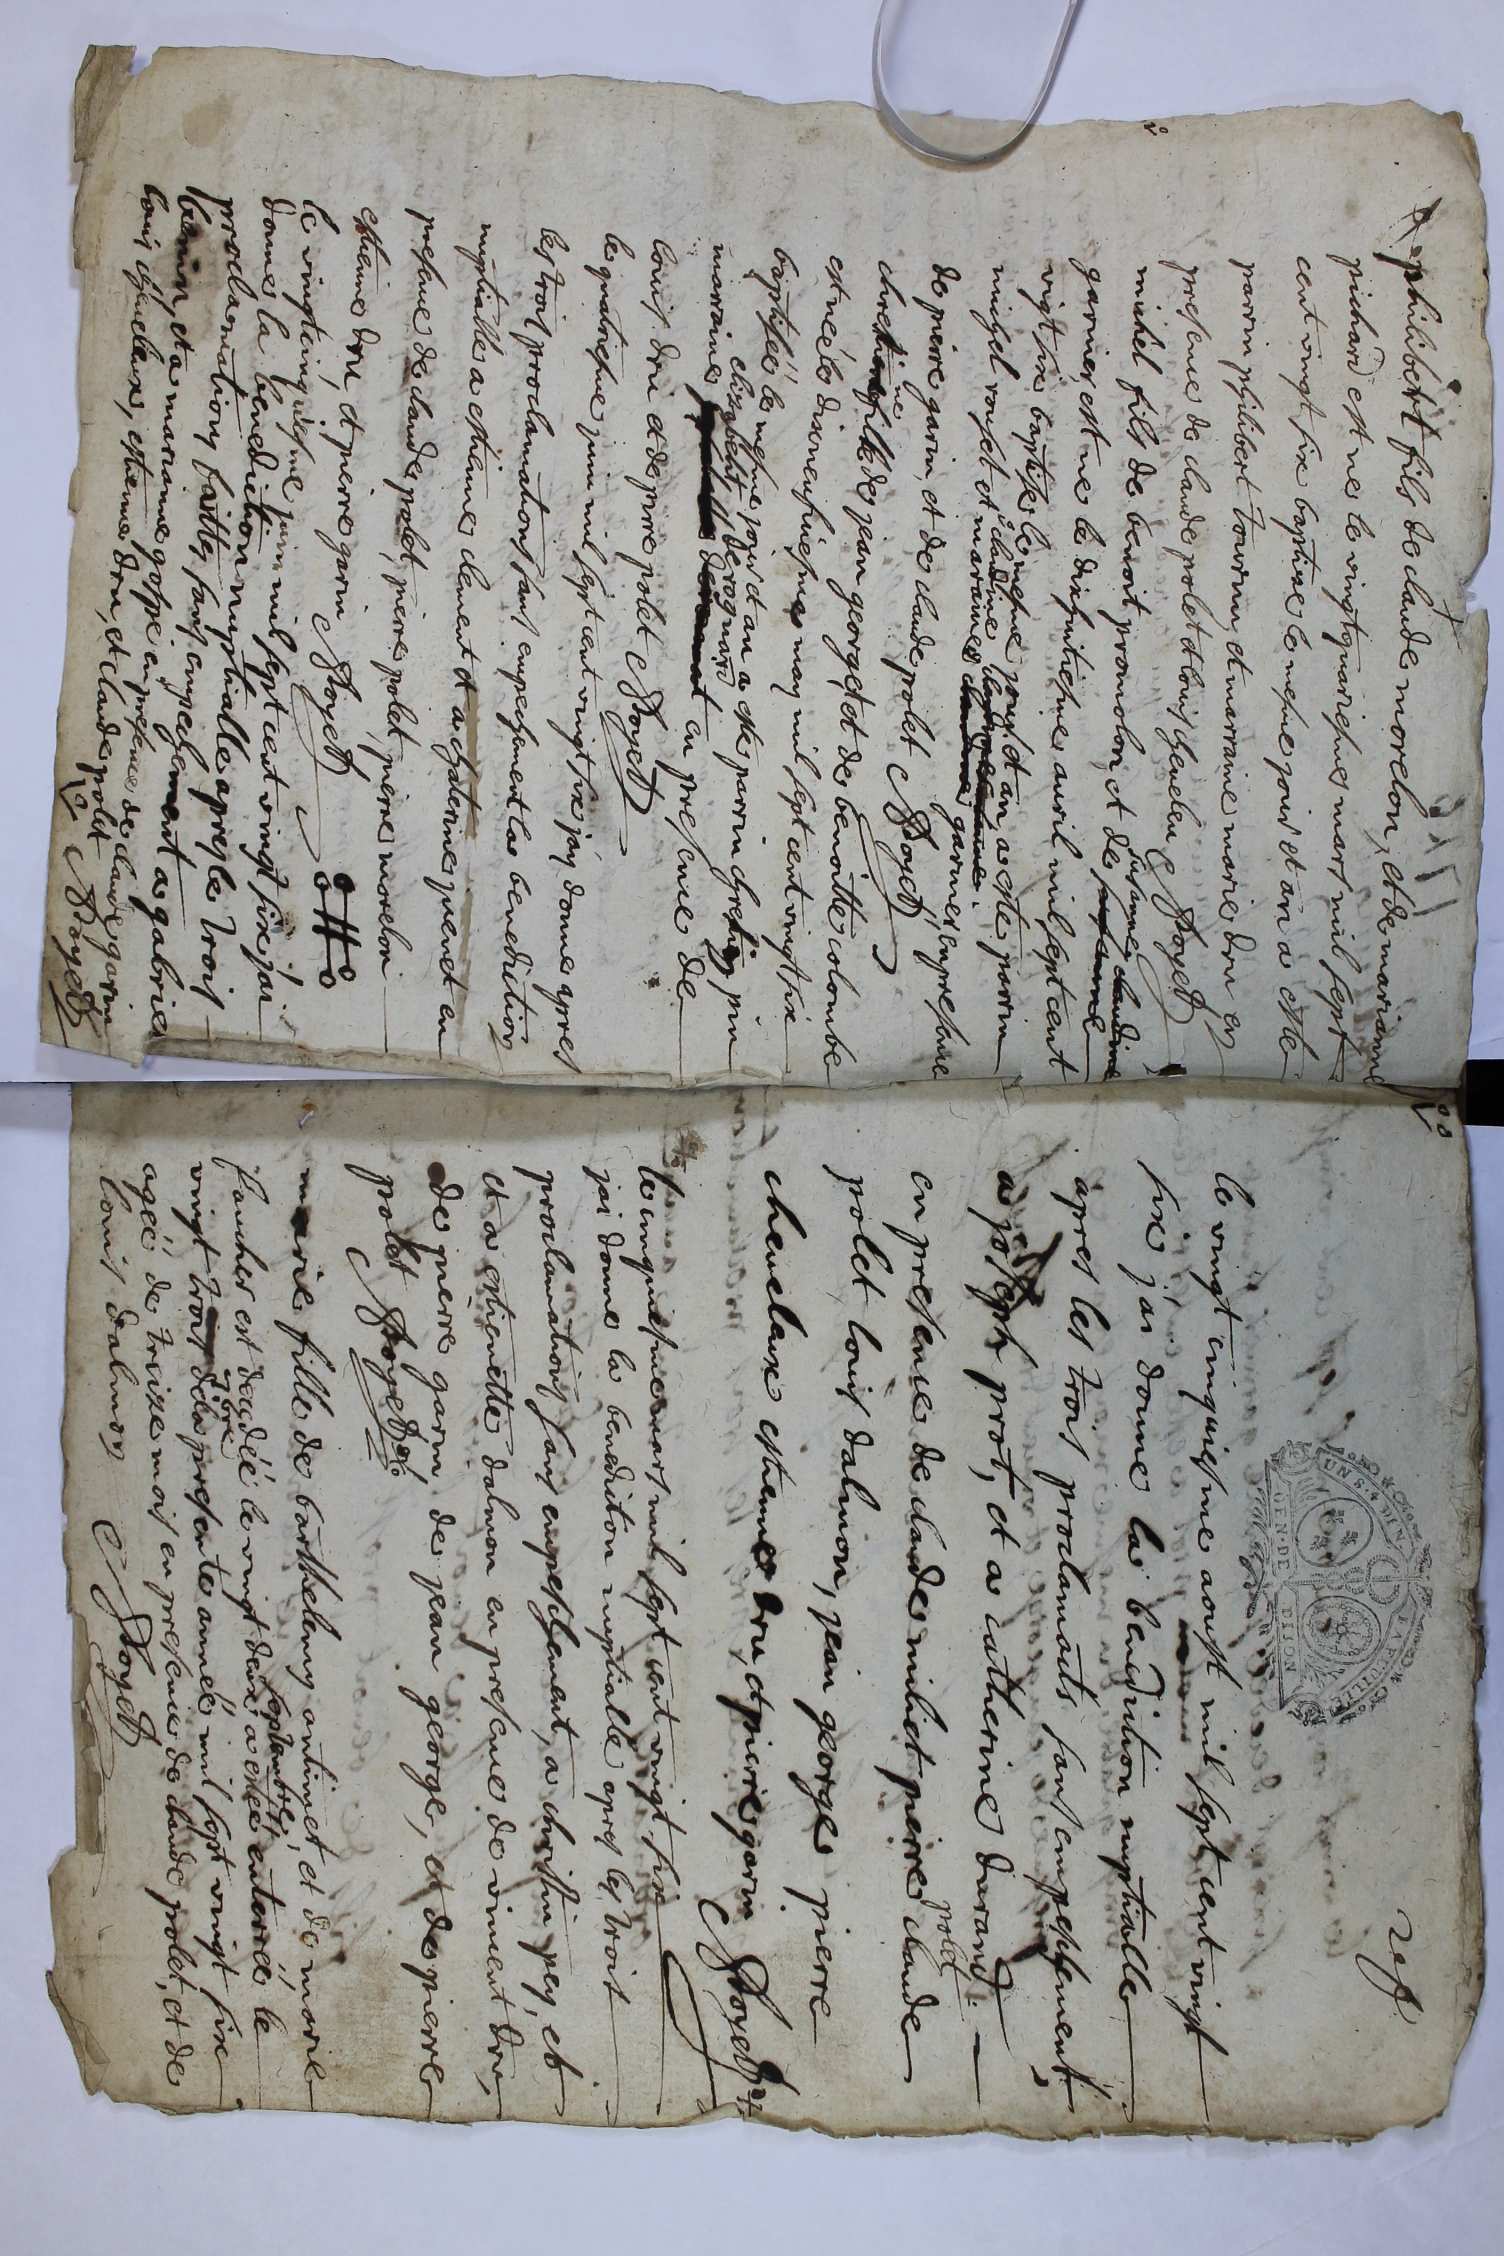 philibert fils de claude morelon, et de marianne
pichard est ne le vingtquatriesme mars mil sept
cent vingt six baptize le mesme jour et an a este
parrin philibert tourrin, et marraine marie dru en
presence de claude polet et louis cheuelau Royet
michel fils de benoit promolon, et de susanne claudine
garnier, est ne le dixhuitiesme auril mil sept cent
vigt six baptizé le mesme jour et an, a este parrin
michel ronset et marraine claudine garnier, en presence
de pierre garin, et de claude polet Royet
chrestine fille de jean george, et de benoitte colombe
est neé le dixneufuiesme may mil sept cent vingt six
baptisée le mesme jour et an a este parrin chrestin pin
marraine elizabeht de rognard en presence de
louis dru et de pierre polet Royet
le quatriesme juin mil sept cent vingt six jay donne apres
les trois proclamations sans empeschement la benediction
nuptialle a estienne clement et a chaterine queret en
presence de claude polet, pierre polet, pierre morelon
estienne dru, et pierre garin Royet
le vingtcinquiesme juin mil sept cent vingt six jai
donne la benediction nuptialle apres les trois
proclamations faitte, sans empeschement a gabriel
benin, et a marianne gospe en presence de claude garin
louis cheuelaux, estienne dru, et claude polet Royet
2ef.
GEN. DE DIJON
UN S. 4 DEN. LA FEUILLE
le vingt cinquiesme aoust mil sept cent vingt
six j'ai donne la benediction nuptialle
apres les trois proclamaõts sans empeschement
a joseph prot, et a catherine durand
en presence de claude michet pierre claude
polet
polet louis dalmon, jean george pierre
cheuelaux estienne dru, et pierre garin Royet
le cinquiesme mars mil sept cent vingt six
jai donne la benediction nuptialle apres les trois
proclamations sans empeschement, a christin pey, et
et a estienette dalmon en presence de vincent dru,
de pierre garin, de jean george, et de pierre
polet Royet
marie fille de barthelemy antimet, et de marie
faucher est decedéé le vingt deux septembre, a estéé enterréé le
vingt trois 7bre de la presente anneé mil sept vingt six
ageé de treize mois en presence de claude polet, et de
louis dalmon Royet